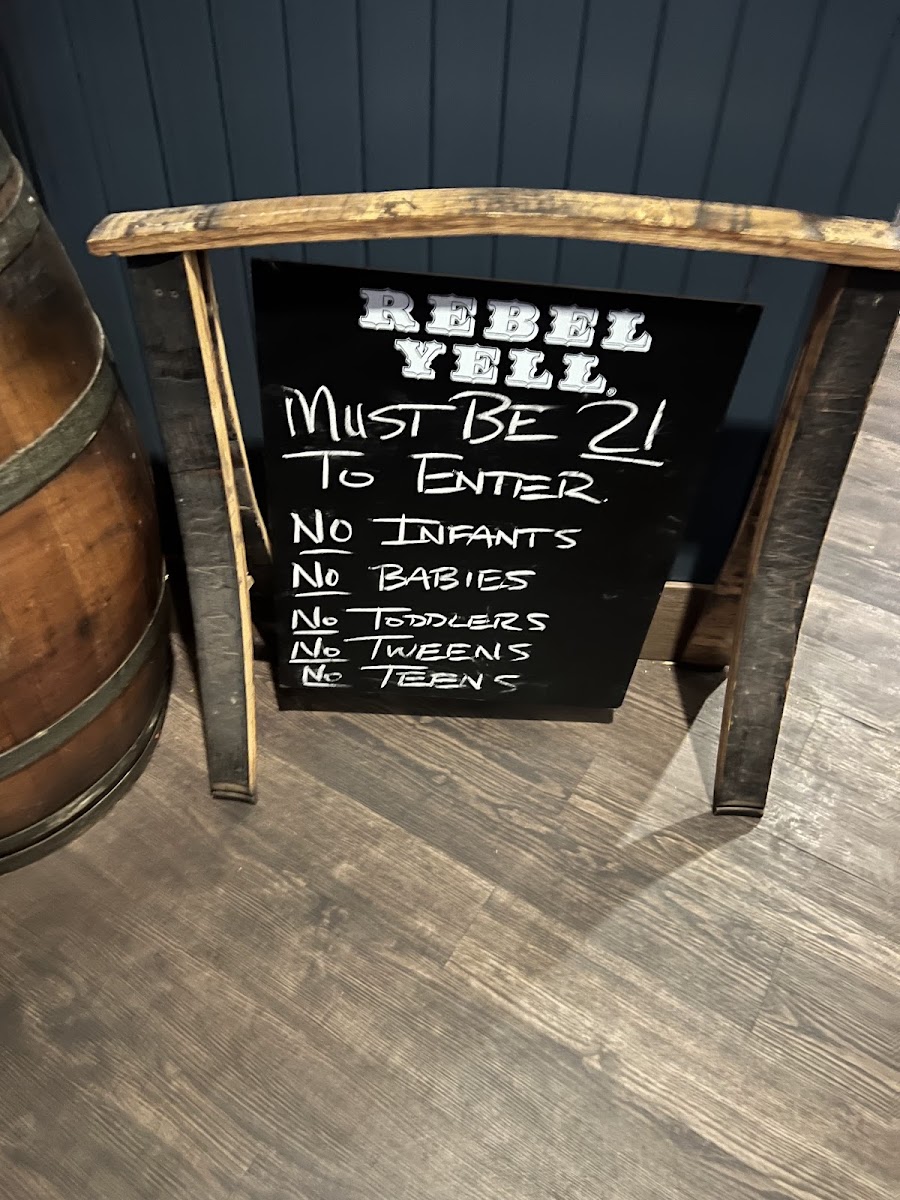 REBEL
YELL.
MUST BE 21
TO ENTER.
NO INFANTS
NO BABIES
NO TODDLERS
NO TWEENS
NO TEENS